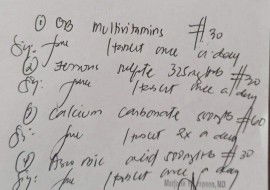 ① OB multivitamins #30
Sig: 1 tablet once a day
② Ferrous sulfate 325mg tab #30
Sig: 1 tablet once a day
③ Calcium carbonate 500mg tab #60
Sig: 1 tablet 2x a day
④ Ascorbic acid 500mg tab #30
Sig: 1 tablet once a day
, MD